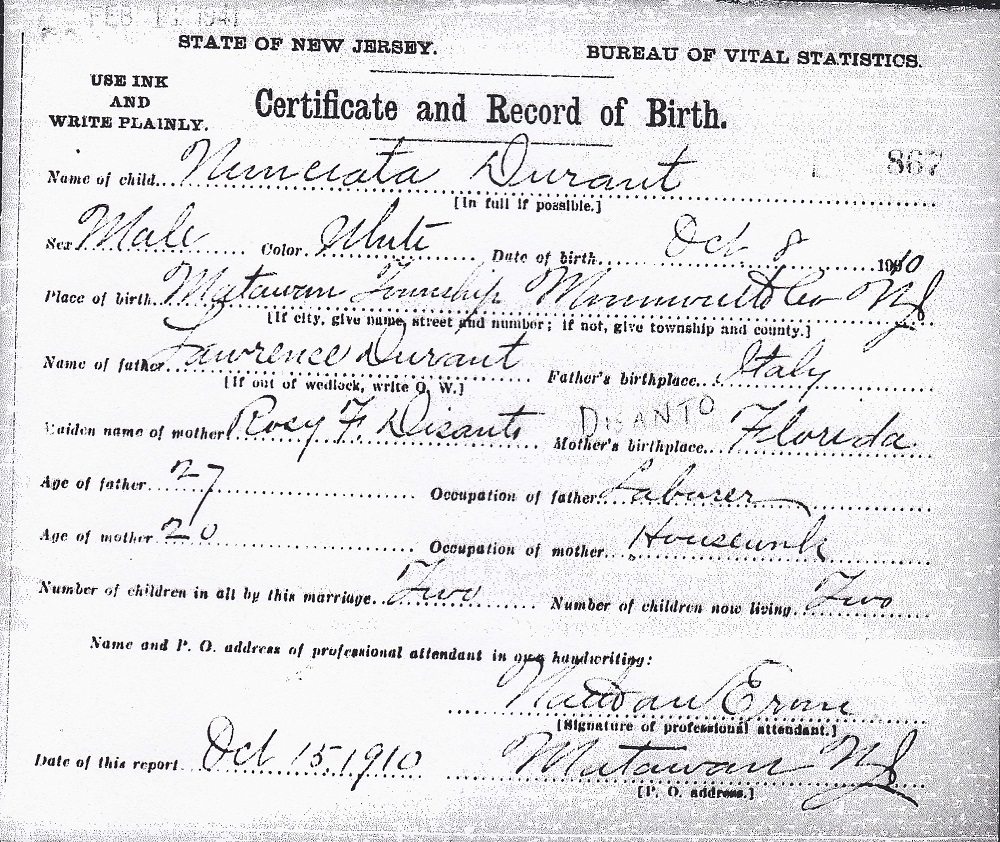 FEB 11 1941
STATE OF NEW JERSEY. BUREAU OF VITAL STATISTICS.
USE INK
AND
WRITE PLAINLY.
Certificate and Record of Birth.
867
Name of child. Nunciata Durant
[In full if possible.]
Sex Male Color. White Date of birth. Oct 8 1910
Place of birth. Matawan Township Monmouth Co NJ
[If city, give name, street and number; if not, give township and county.]
Name of father Lawrence Durant Father's birthplace. Italy
[If out of wedlock, write O. W.]
DISANTO
Maiden name of mother Rosy F. Disanto Mother's birthplace. Florida
Age of father. 27 Occupation of father Laborer
Age of mother 20 Occupation of mother. Housework
Number of children in all by this marriage. Two Number of children now living. Two
Name and P. O. address of professional attendant in own handwriting:
[Signature of professional attendant.]
Date of this report Oct 15 1910 Matawan NJ
[P. O. address.]